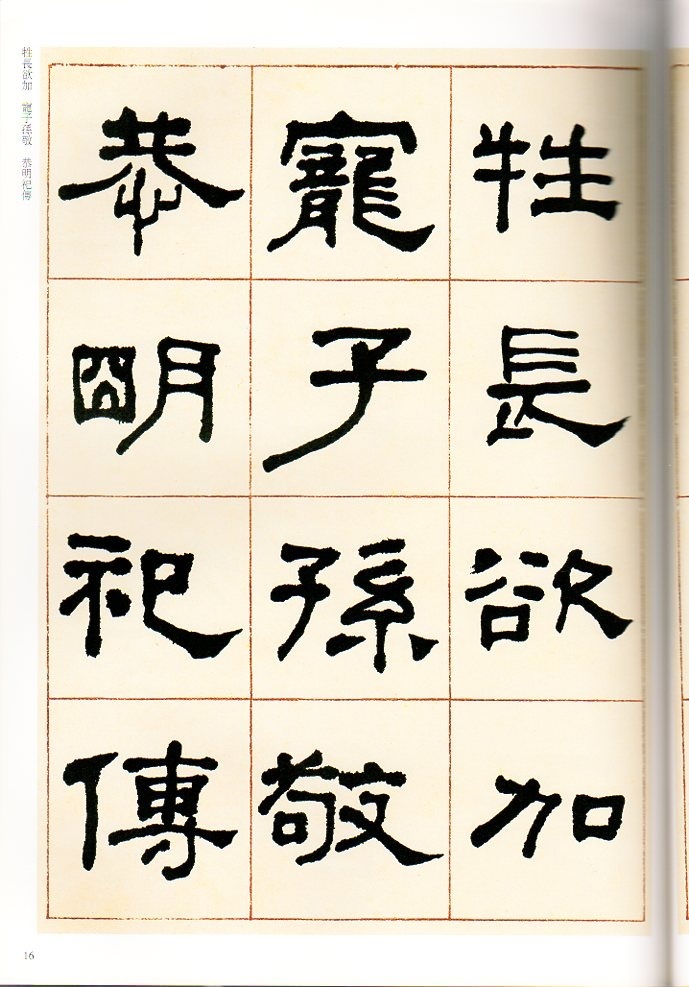 牲長欲加
寵子孫敬
恭明祀傳
牲長欲加 寵子孫敬 恭明祀傳
16